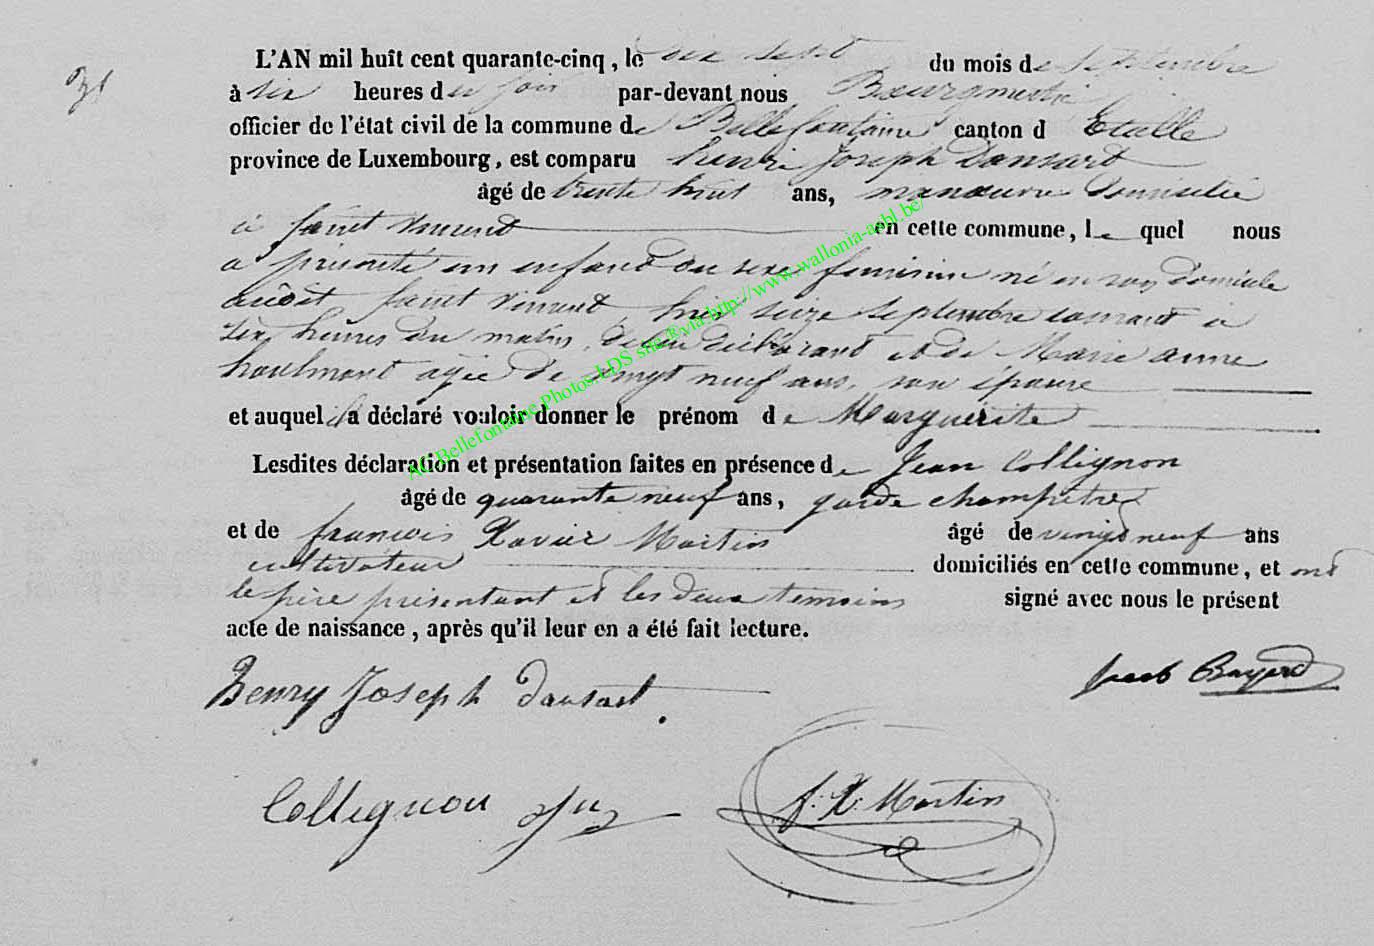 31
L'AN mil huit cent quarante-cinq, le dix sept du mois de septembre
à six heures du soir par-devant nous Bourgmestre
officier de l'état civil de la commune de Bellefontaine canton d Etalle
province de Luxembourg, est comparu henri Joseph Dansart
âgé de trente huit ans, manœuvre domicilié
à saint vincent en cette commune, le quel nous
a présenté un enfant du sexe féminin né en son domicile
audit saint vincent, hier seize septembre courant à
six heures du matin, de lui déclarant et de Marie anne
haulmont agée de vingt neuf ans, son épouse
et auquel il a déclaré vouloir donner le prénom de Marguerite
Lesdites déclaration et présentation faites en présence de Jean Collignon
âgé de quarante neuf ans, garde champêtre
et de françois Xavier Martin âgé de vingt neuf ans
cultivateur domiciliés en cette commune, et ont
le père présentant et les deux temoins signé avec nous le présent
acte de naissance, après qu'il leur en a été fait lecture.
Henry Joseph dansart
Collignon
f. X. Martin
AC Bellefontaine Photos LDS site & via http://www.wallonia-asbl.be/